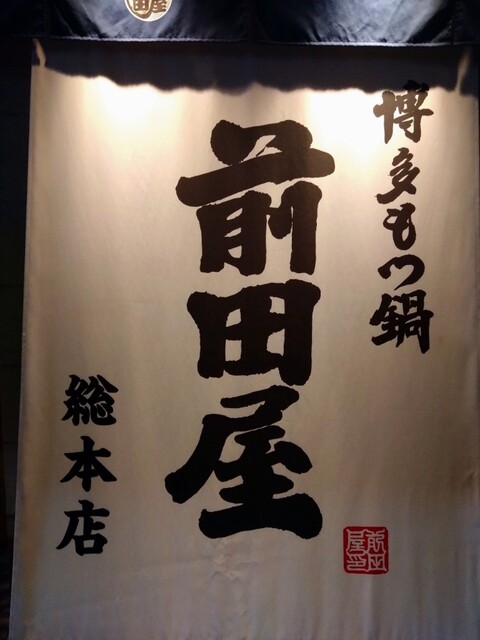 博多もつ鍋
前田屋
総本店
前田
屋印